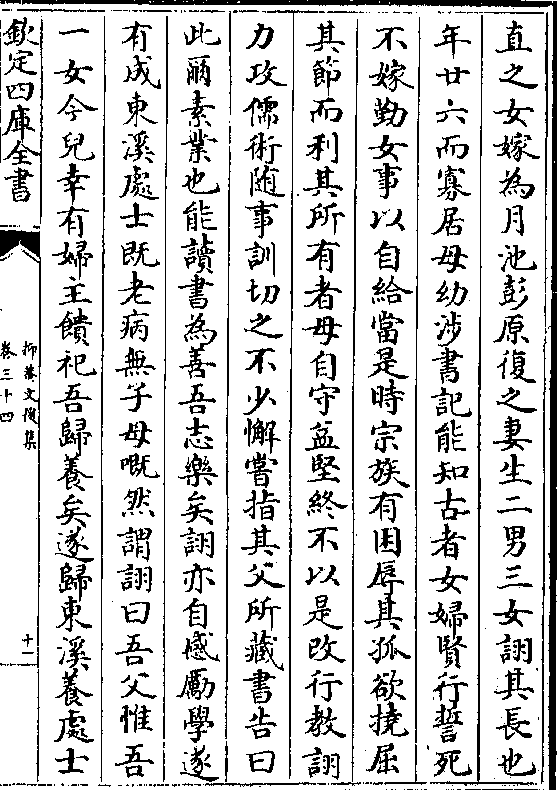 直之女嫁為月池彭原復之妻生二男三女詡其長也
年廿六而寡居母幼涉書記能知古者女婦賢行誓死
不嫁勤女事以自給當是時宗族有困辱其孤欲撓屈
其節而利其所有者母自守益堅終不以是改行教詡
力攻儒術随事訓切之不少懈嘗指其父所藏書告曰
此爾素業也能讀書為善吾志樂矣詡亦自感勵學遂
有成東溪處士既老病無子母嘅然謂詡曰吾父惟吾
一女今兒幸有婦主饋祀吾歸養矣遂歸東溪養處士
欽定四庫全書
抑菴文後集
卷三十四
十一